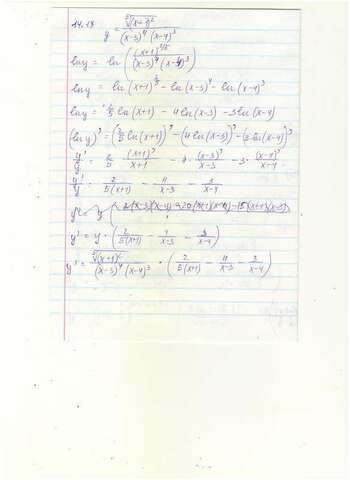 14.18
y = ⁵√(x+1)² / (x-3)⁴ (x-4)³
ln y = ln ( (x+1)^(2/5) / (x-3)⁴ (x-4)³ )
ln y = ln(x+1)^(2/5) - ln(x-3)⁴ - ln(x-4)³
ln y = 2/5 ln(x+1) - 4 ln(x-3) - 3 ln(x-4)
(ln y)' = (2/5 ln(x+1))' - (4 ln(x-3))' - (3 ln(x-4))'
y'/y = 2/5 · (x+1)'/(x+1) - 4 · (x-3)'/(x-3) - 3 · (x-4)'/(x-4)
y'/y = 2/5(x+1) - 4/(x-3) - 3/(x-4)
y' = y · ( 2/5(x+1) - 4/(x-3) - 3/(x-4) )
y' = ⁵√(x+1)² / (x-3)⁴ (x-4)³ · ( 2/5(x+1) - 4/(x-3) - 3/(x-4) )